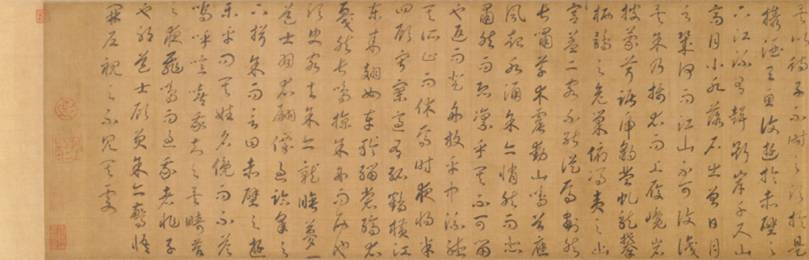 矣以待子不時之須於是
攜酒與魚復遊於赤壁之
下江流有聲斷岸千尺山
高月小水落石出曾日月
之幾何而江山不可復識
矣余乃攝衣而上履巉岩
披蒙茸踞虎豹登虬龍攀
栖鶻之危巢俯馮夷之幽
宮蓋二客不能從焉劃然
長嘯草木震動山鳴谷應
風起水涌余亦悄然而悲
肅然而恐凜乎其不可留
也返而登舟放乎中流聽
其所止而休焉時夜將半
四顧寂寥適有孤鶴橫江
東來翅如車輪玄裳縞衣
戛然長鳴掠余舟而西也
須臾客去余亦就睡夢一
道士羽衣翩僊過臨皋之
下揖余而言曰赤壁之遊
樂乎問其姓名俛而不答
嗚呼噫嘻我知之矣疇昔
之夜飛鳴而過我者非子
也耶道士顧笑余亦驚悟
開戶視之不見其處